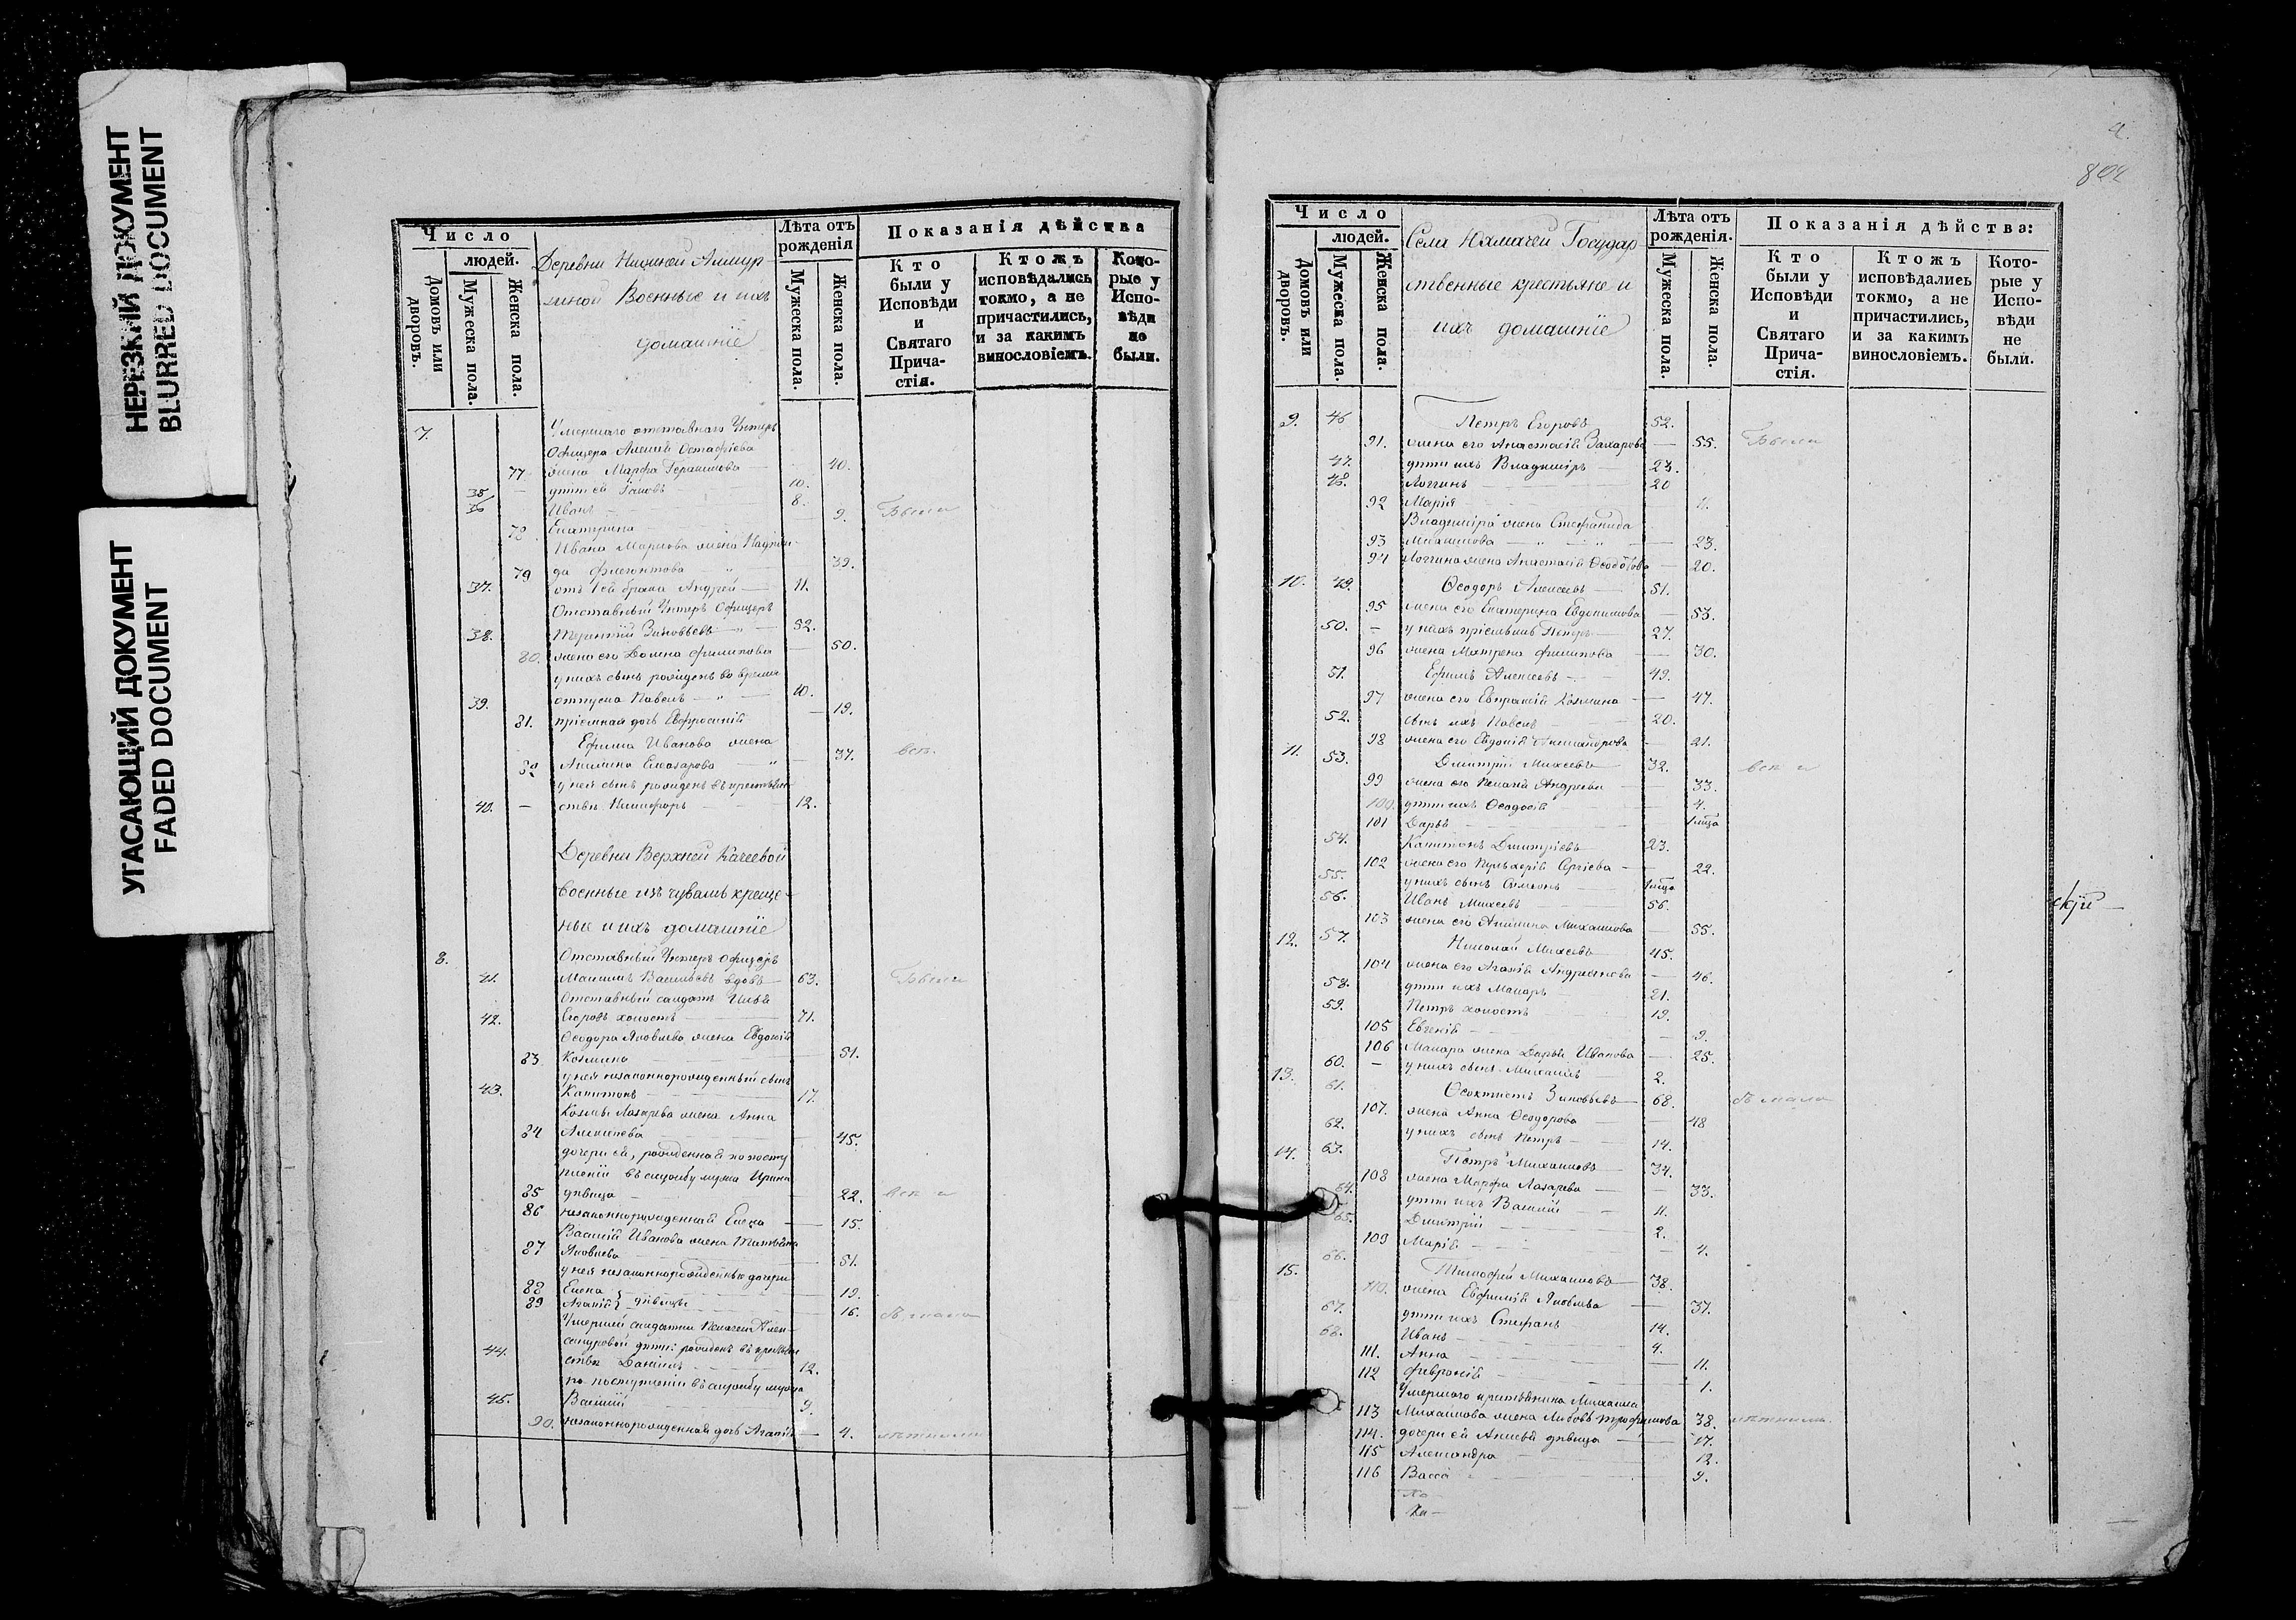 НЕРЕЗКИЙ ДОКУМЕНТ
BLURRED DOCUMENT
УГАСАЮЩИЙ ДОКУМЕНТ
FADED DOCUMENT
Число
людей.
Домовъ или дворовъ.
Мужеска пола.
Женска пола.
Деревни Нижней Алмур-
зиной Военные и ихъ
домашніе
Лѣта отъ рожденія
Мужеска пола.
Женска пола.
Показанія дѣйства
Кто были у Исповѣди и Святаго Прича-стія.
Ктожъ исповѣдались токмо, а не причастились, и за какимъ винословіемъ.
Кото-рые у Испо-вѣди не были.
7. Умершаго отставнаго Унтеръ
Офицера Алексія Остафіева
77 жена Марфа Герасимова 40.
35 дѣти ея Іаковъ 10.
36 Иванъ 8.
78 Екатерина 9. Были
Ивана Маркова жена
79 39.
37. отъ 1ой брака Андрей 11.
Отставный Унтеръ Офицеръ
38. Терентій Зиновьевъ 52.
80. жена его Домна Филипова 50.
у нихъ сынъ рожденъ во время
39. отпуска Павелъ 10.
81. пріемная дочь Евфросинія 19.
Ефима Иванова жена
82 Акилина Елеазарова 37.
у ней сынъ рожденъ въ крестьян
40. ствѣ Никифоръ 12.
Деревни Верхней Качеевой
Военные изъ чувашъ креще-
ные и ихъ домашніе
8. Отставный Унтеръ Офицеръ
41. Максимъ Васильевъ вдовъ 63. Были
Отставный солдатъ Илья
42. Егоровъ холостъ 71.
Ѳеодора Яковлева жена Евдокія
83 Козмина 51.
у ней незаконнорожденный сынъ
43. Капитонъ 17.
Козмы Лазарева жена Анна
84 Алексіева 45.
дочери ея, рожденная по посту
пленіи въ службу мужа Ирина
85 дѣвица 22.
86 незаконнорожденная Елена 15.
Василія Иванова жена Татьяна
87 Яковлева 51.
у ней незаконнорожденные дочери
88 Елена 19.
89 Агафія дѣвицы 16.
Умершей солдатки Пелагеи Алек-
сандровой дѣти: рожденъ въ крестьян
44. ствѣ Даніилъ 12.
по поступленіи въ службу мужа
45. Василій 9.
90. незаконнорожденная дочь Агафія 4.
4.
804
Число
людей.
Домовъ или дворовъ.
Мужеска пола.
Женска пола.
Села Юхмачей Государ
ственные крестьяне и
ихъ домашніе
Лѣта отъ рожденія.
Мужеска пола.
Женска пола.
Показанія дѣйства:
Кто были у Исповѣди и Святаго Прича-стія.
Ктожъ исповѣдались токмо, а не причастились, и за какимъ винословіемъ.
Кото-рые у Испо-вѣди не были.
9. 46 Петръ Егоровъ 52.
91. жена его Анастасія Захарова 55. Были
47. дѣти ихъ Владиміръ 23.
48. Логгинъ 20
92 Марія
Владиміра жена Стефанида
93 23.
94 Логгина жена Анастасія 20.
10. 49. Ѳеодоръ Алексеевъ 51.
95 жена его Екатерина Евдокимова 53.
50. у нихъ пріемышъ Петръ 27.
96 жена Матрена Филипова 30.
51. Ефимъ Алексеевъ 49.
97 жена его Евпраксія Козмина 47.
52. сынъ ихъ Павелъ 20.
98 жена его Евдокія 21.
11. 53. Дмитрій Михеевъ 32.
99 жена его Пелагія Андреева 33.
100. дѣти ихъ Ѳеодосія 4.
101 Дарья
54. Капитонъ Дмитріевъ 23.
102 жена его Пульхерія Сергіева 22.
55. у нихъ сынъ Симеонъ
56. Иванъ Михеевъ 56.
103 жена его Акилина Михаилова 55.
12. 57. Николай Михеевъ 45.
104 жена его Агафія Андреянова 46.
58. дѣти ихъ Макаръ 21.
59. Петръ холостъ 19.
105 Евгенія 9.
106 Макара жена Дарья Иванова 25.
60. у нихъ сынъ Михаилъ 2.
13. 61. Ѳеоктистъ Зиновьевъ 68.
107. жена Анна Ѳеодорова 48
62. у нихъ сынъ Петръ 14.
14. 63. Петръ Михаиловъ 34.
108 жена Марфа Лазарева 33.
64. дѣти ихъ Василій 11.
65. Дмитрій 2.
109 Марія 4.
15. 66. Тимофей Михаиловъ 38.
110. жена Евфимія Яковлева 37.
67. дѣти ихъ Стефанъ 14.
68. Иванъ 4.
111. Анна 11.
112 Февронія 1.
Умершаго крестьянина Михаила
113 Михаилова жена Любовь Трофимова 38.
114. дочери ея Аксинья дѣвица 17.
115 Александра 12.
116 Васса 9.
скій